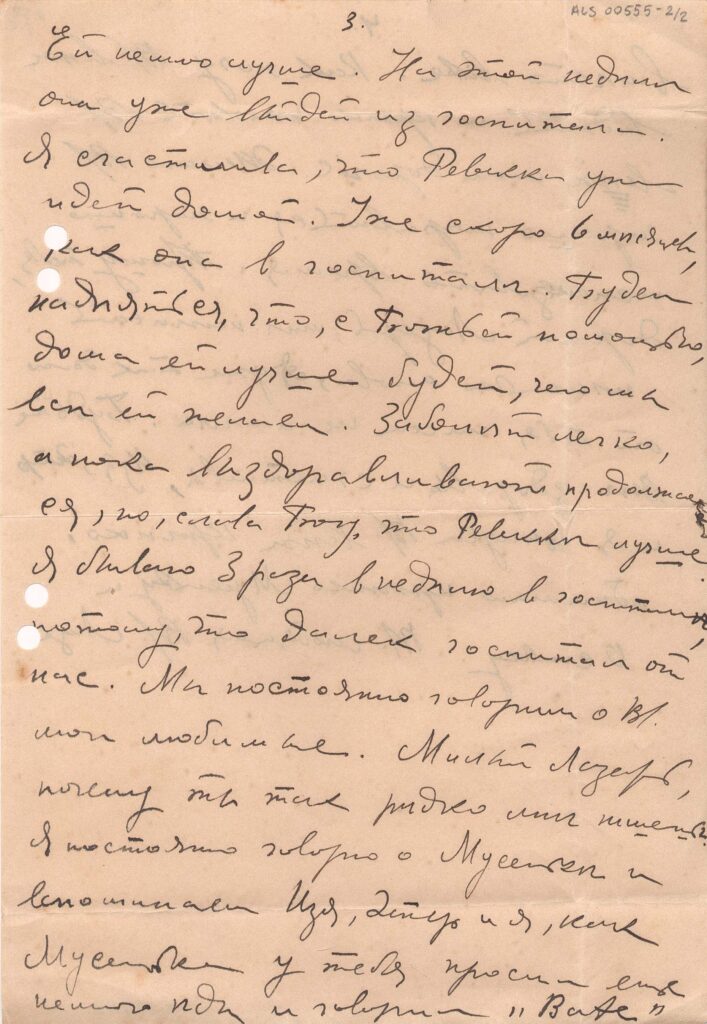 3.
ALS 00555-2/2
Ей немного лучше. На этой недели
она уже выйдет из госпиталя.
Я счастлива, что Ревекка уже
идет домой. Уже скоро 6 месяцев,
как она в госпитали. Будем
надеяться, что, с Божьей помощью,
дома ей лучше будет, чего мы
все ей желаем. Заболят легко,
а пока выздоравливают продолжает
ся, но, слава Богу, что Ревекки лучше
Я бываю 3 раза в неделю в госпитали,
потому, что далек госпитал от
нас. Мы постоянно говорим о Вы
мои любимые. Милый Лазарь,
почему ты так редко мне пишешь?
Я постоянно говорю о Мусеньки и
вспоминаем Изя, Этер и я, как
Мусенька у тебя просил еще
немного и говорил „Вате"